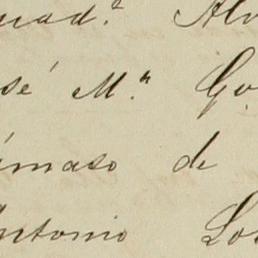 uad.ª Alv
sé M.ª Go
ámaso de
Antonio Los